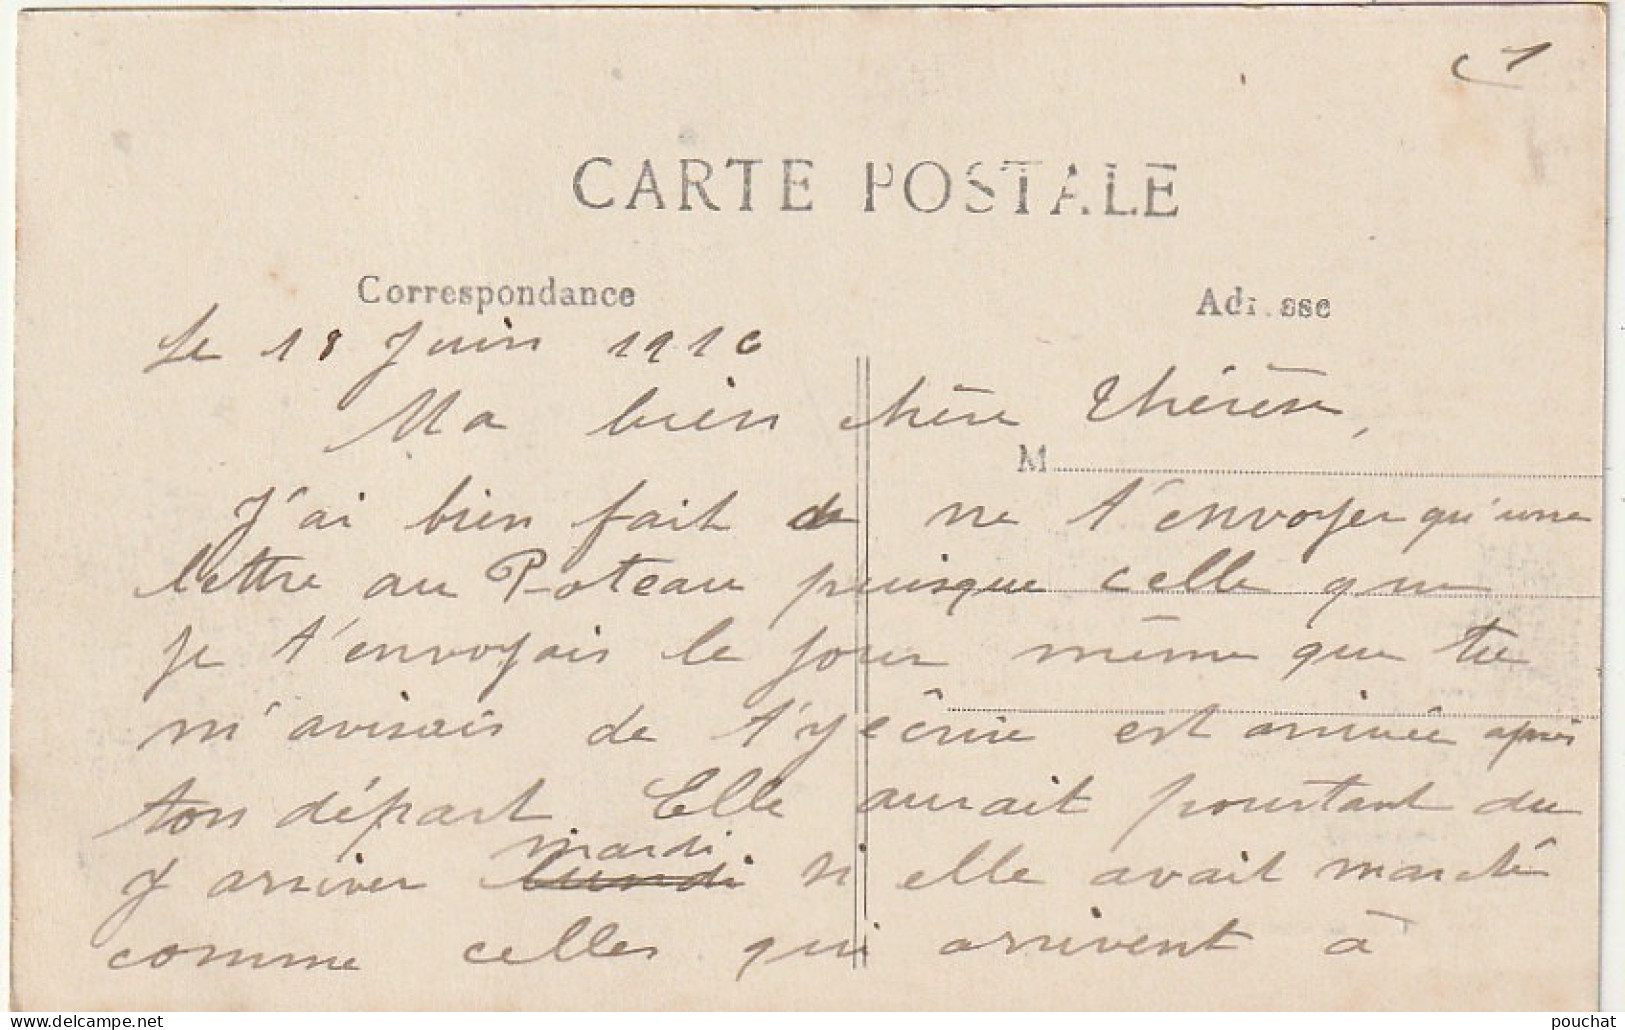 1
CARTE POSTALE
Correspondance
Adresse
Le 18 Juin 1916
Ma bien chère Thérèse,
M
J'ai bien fait de ne t'envoyer qu'une
lettre au Poteau puisque celle que
je t'envoyais le jour même que tu
m'avisais de t'y écrire est arrivée après
ton départ Elle aurait pourtant du
y arriver lundi mardi si elle avait marché
comme celles qui arrivent à
www.delcampe.net
pouchat